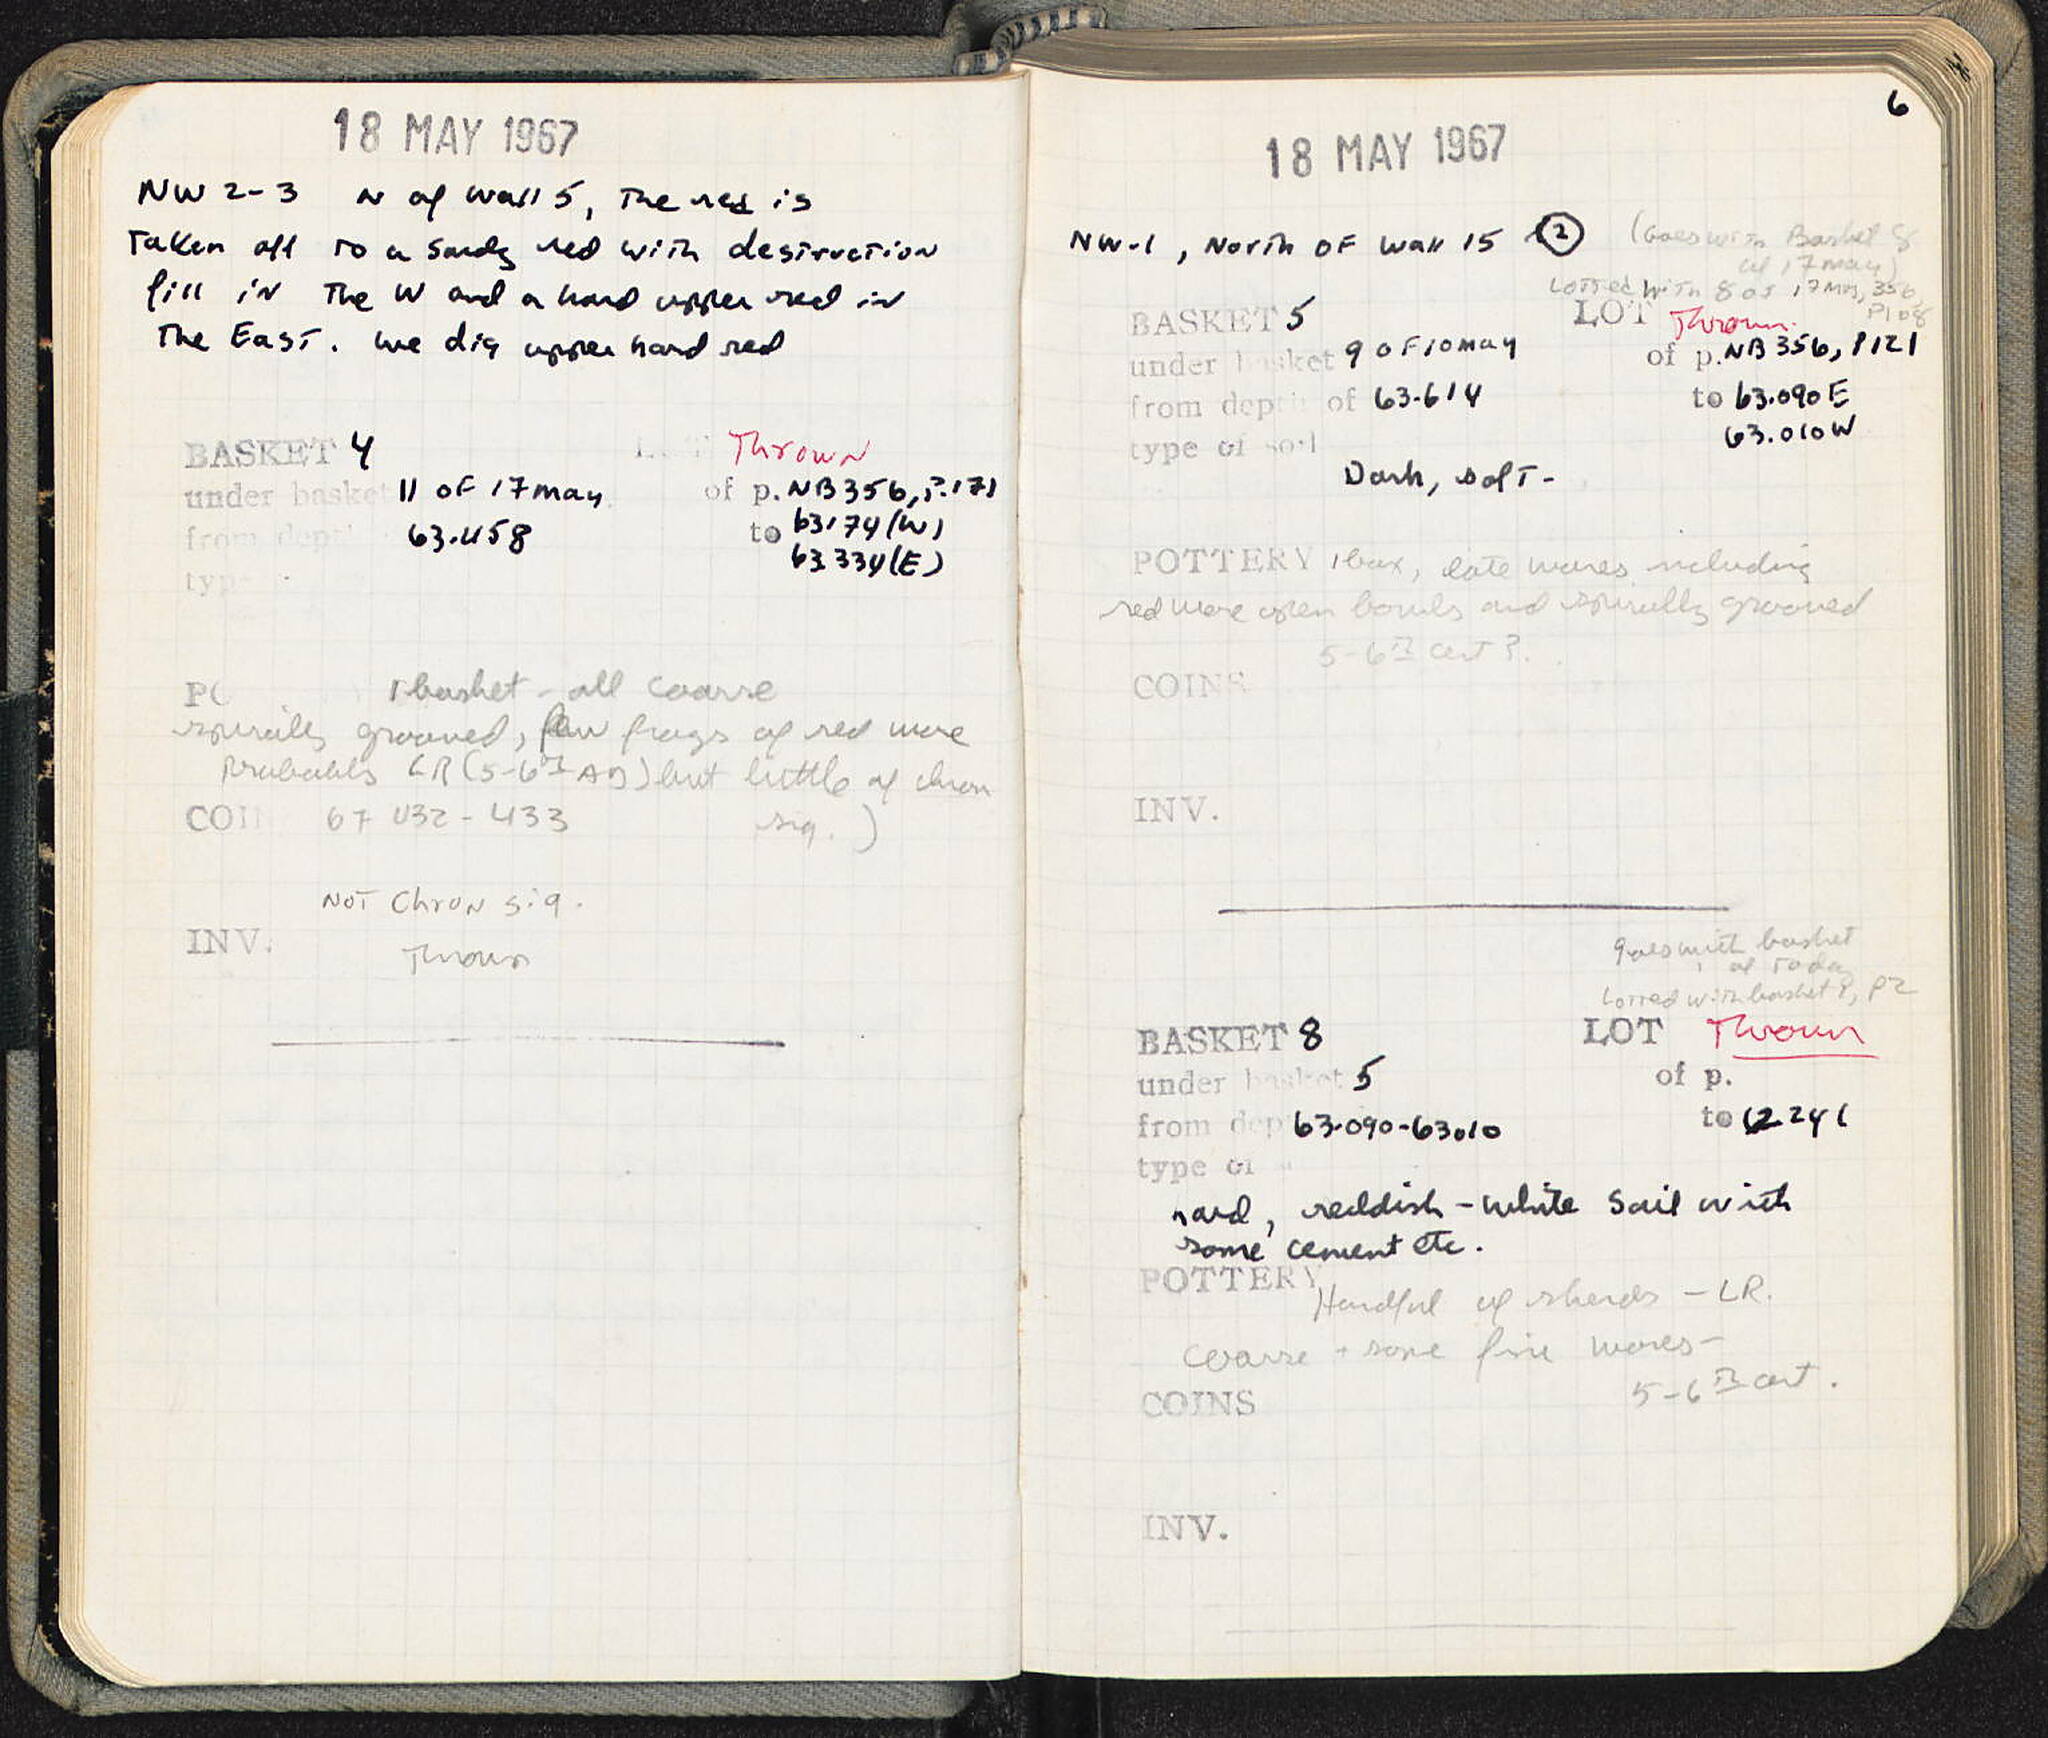 18 MAY 1967
NW 2-3 N of Wall 5, The red is
Taken off to a sandy red with destruction
fill in The W and a hard upper red in
The East. We dig upper hard red
BASKET 4 Thrown
under basket 11 OF 17 may of p. NB 356, P.171
from depth 63.458 to 63.174 (W)
63.334 (E)
typ
PO 1 basket - all coarse
spirally grooved, few frags of red ware
Probably LR (5-6th AD) but little of chron
sig. )
COIN 67 432 - 433
NOT Chron sig.
INV. Thrown
6
18 MAY 1967
NW-1, North OF Wall 15 2 (Goes with Basket 8
of 17 may)
Lotted with 8 of 17 May, 356,
P108
BASKET 5 LOT Thrown
under basket 9 OF 10 may of p. NB 356, P121
from depth of 63.614 to 63.090 E
63.010 W
type of soil
Dark, soft -
POTTERY 1 box, late wares including
red ware open bowls and spirally grooved
5-6th cent ?.
COINS
INV.
goes with basket
of Today
Lotted with basket 8, P2
BASKET 8 LOT Thrown
under basket 5 of p.
from dep 63.090-63.010 to 62.241
type of
hard, reddish-white Soil with
some cement etc.
POTTERY Handful of sherds - LR.
coarse + some fine wares -
5-6th cent.
COINS
INV.